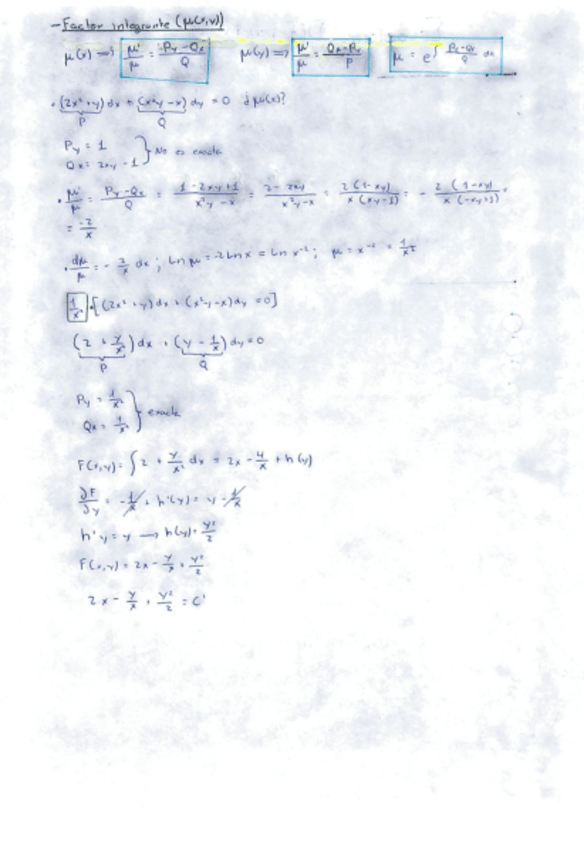 - Factor integrante (μ(x,y))
μ(x) => μ'/μ = Py - Qx / Q   μ(y) => μ'/μ = Qx - Py / P   μ = e^∫ Py - Qx / Q dx
· (2x² + y) dx + (x²y - x) dy = 0 ¿μ(x)?
P   Q
Py = 1
Qx = 2xy - 1 } No es exacta
· μ'/μ = Py - Qx / Q = 1 - 2xy + 1 / x²y - x = 2 - 2xy / x²y - x = 2(1 - xy) / x(xy - 1) = - 2(1 - xy) / x(-xy + 1) =
= -2/x
· dμ/μ = - 2/x dx ; Ln μ = -2 Ln x = Ln x⁻² ; μ = x⁻² = 1/x²
1/x² · [(2x² + y) dx + (x²y - x) dy = 0]
(2 + y/x²) dx + (y - 1/x) dy = 0
P   Q
Py = 1/x²
Qx = 1/x² } exacta
F(x,y) = ∫ 2 + y/x² dx = 2x - y/x + h(y)
∂F/∂y = -1/x + h'(y) = y - 1/x
h'y = y → h(y) = y²/2
F(x,y) = 2x - y/x + y²/2
2x - y/x + y²/2 = C'